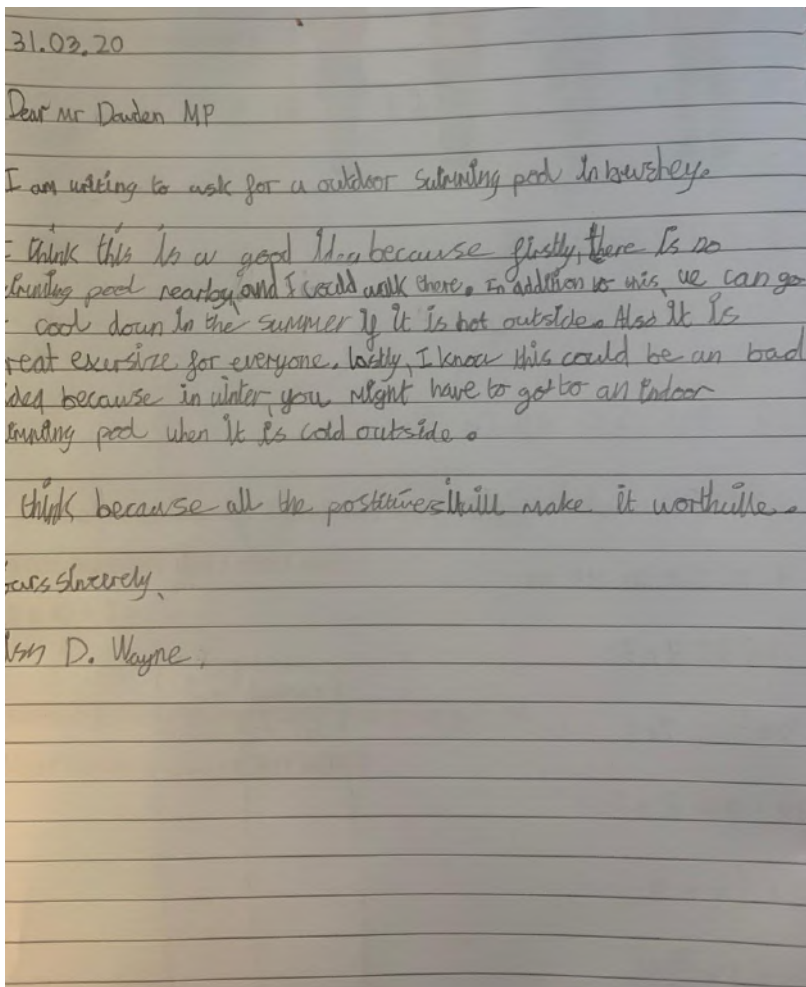 31.03.20
Dear Mr Dowden MP
I am writing to ask for a outdoor swimming pool in bushey.
think this is a good idea because firstly, there is no
pool nearby and I could walk there. In addition to this, we can go
cool down in the summer if it is hot outside. Also it is
reat exersize for everyone. lastly, I know this could be an bad
dea because in winter, you might have to got to an indoor
pool when it is cold outside.
think because all the postitives will make it worthwille.
ours sincerely,
D. Wayne